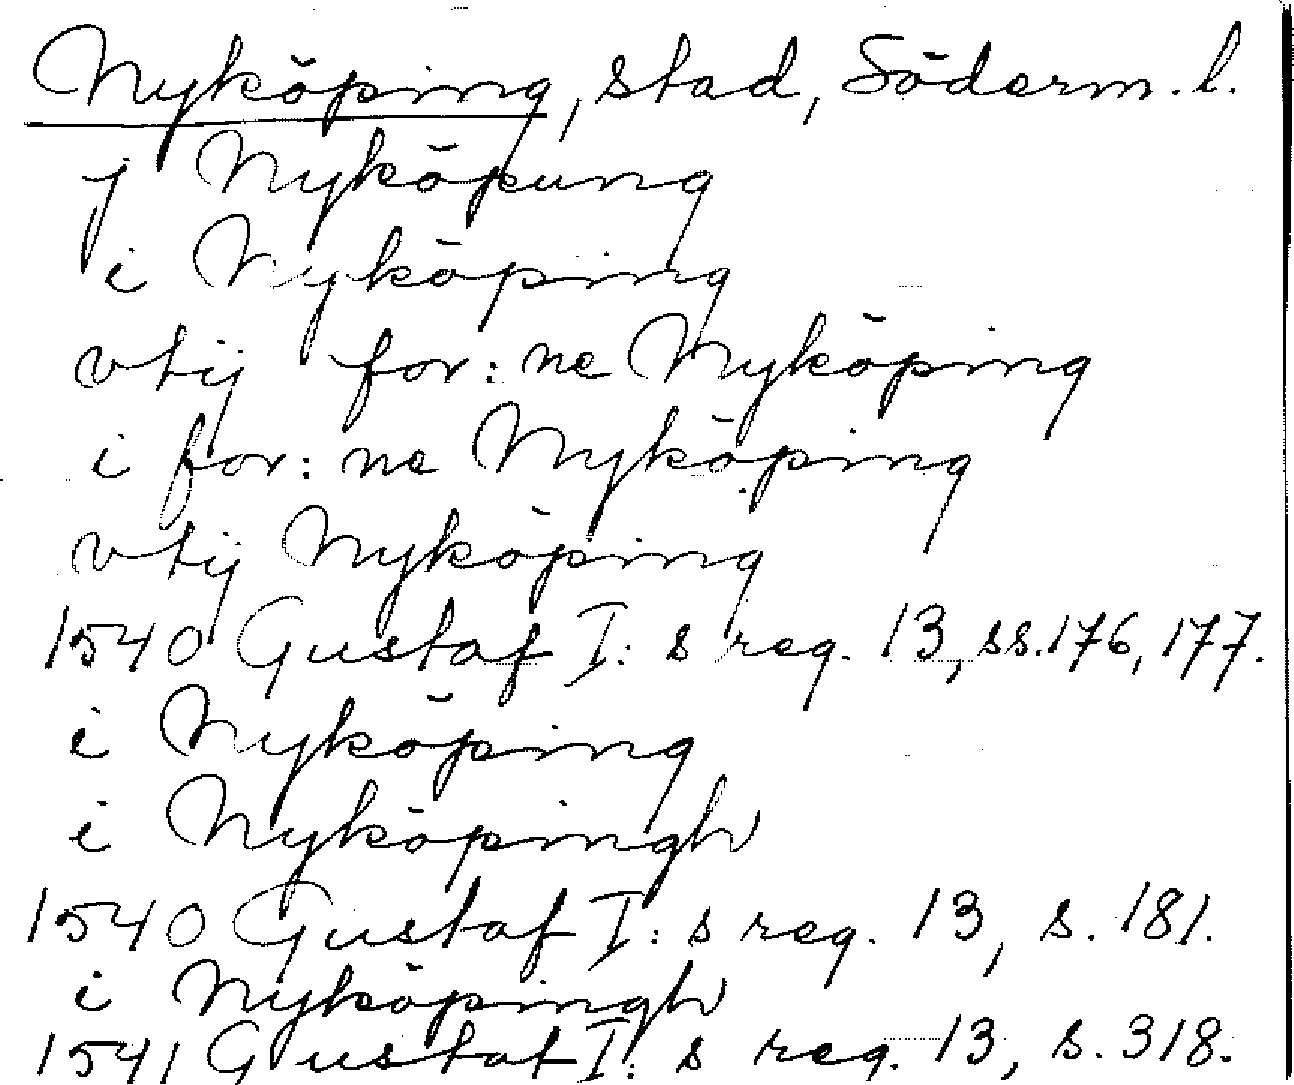 Nyköping, stad, Söderm.l.
j Nyköpung
i Nyköping
vtij for:ne Nyköping
i for:ne Nyköping
vtij Nyköping
1540 Gustaf I:s reg. 13, ss.176, 177.
i Nyköping
i Nyköpingh
1540 Gustaf I:s reg. 13, s. 181.
i Nyköpingh
1541 Gustaf I:s reg. 13, s. 318.